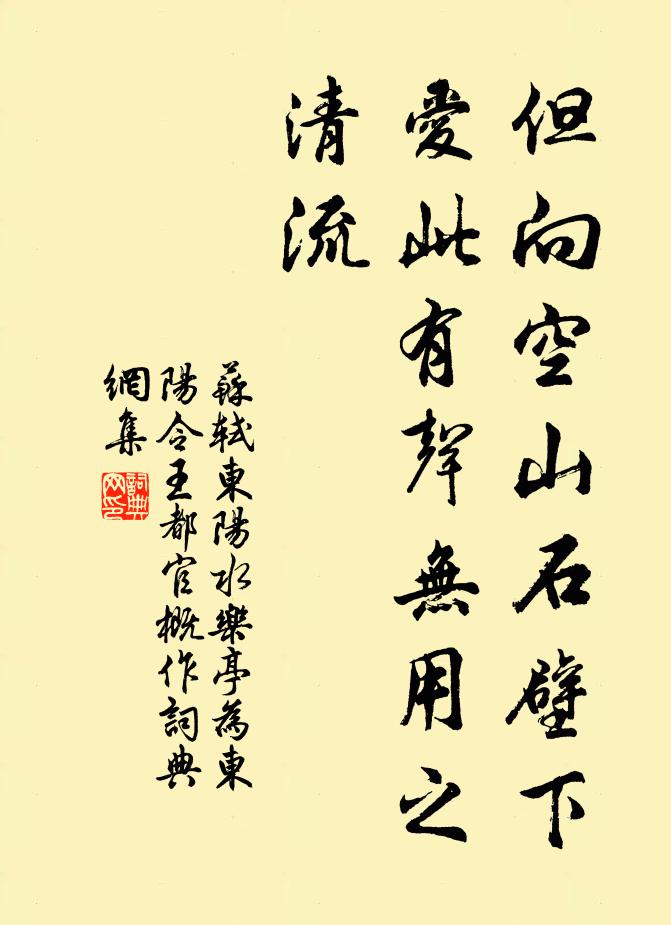 但向空山石壁下
愛此有聲無用之
清流
蘇軾東陽水樂亭為東
陽令王都官概作詞典
網集
詞典
网印